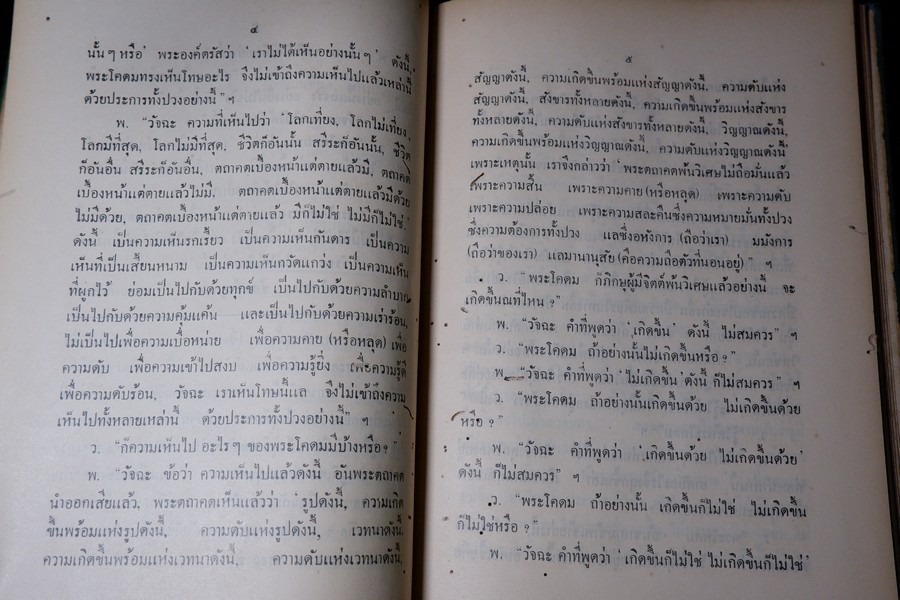 ๔
นั้น ๆ หรือ' พระองค์ตรัสว่า 'เราไม่ได้เห็นอย่างนั้น ๆ' ดังนี้,
พระโคดมทรงเห็นโทษอะไร จึงไม่เข้าถึงความเห็นไปแล้วเหล่านี้
ด้วยประการทั้งปวงอย่างนี้" ฯ
พ. "วัจฉะ ความที่เห็นไปว่า 'โลกเที่ยง, โลกไม่เที่ยง,
โลกมีที่สุด, โลกไม่มีที่สุด, ชีวิตก็อันนั้น สรีระก็อันนั้น, ชีวิต
ก็อันอื่น สรีระก็อันอื่น, ตถาคตเบื้องหน้าแต่ตายแล้วมี, ตถาคต
เบื้องหน้าแต่ตายแล้วไม่มี, ตถาคตเบื้องหน้าแต่ตายแล้วมีด้วย
ไม่มีด้วย, ตถาคตเบื้องหน้าแต่ตายแล้ว มีก็ไม่ใช่ ไม่มีก็ไม่ใช่,'
ดังนี้ เป็นความเห็นรกเรี้ยว เป็นความเห็นกันดาร เป็นความ
เห็นที่เป็นเสี้ยนหนาม เป็นความเห็นกวัดแกว่ง เป็นความเห็น
ที่ผูกไว้ ย่อมเป็นไปกับด้วยทุกข์ เป็นไปกับด้วยความลำบาก
เป็นไปกับด้วยความคุมแค้น และเป็นไปกับด้วยความเร่าร้อน,
ไม่เป็นไปเพื่อความเบื่อหน่าย เพื่อความคาย (หรือหลุด) เพื่อ
ความดับ เพื่อความเข้าไปสงบ เพื่อความรู้ยิ่ง เพื่อความรู้ดี
เพื่อความดับร้อน, วัจฉะ เราเห็นโทษนี้แล จึงไม่เข้าถึงความ
เห็นไปทั้งหลายเหล่านี้ ด้วยประการทั้งปวงอย่างนี้" ฯ
ว. "ก็ความเห็นไป อะไร ๆ ของพระโคดมมีบ้างหรือ ?"
พ. "วัจฉะ ข้อว่า ความเห็นไปแล้วดังนี้ อันพระตถาคต
นำออกเสียแล้ว, พระตถาคตเห็นแล้วว่า 'รูปดังนี้, ความเกิด
ขึ้นพร้อมแห่งรูปดังนี้, ความดับแห่งรูปดังนี้, เวทนาดังนี้,
ความเกิดขึ้นพร้อมแห่งเวทนาดังนี้, ความดับแห่งเวทนาดังนี้,
๕
สัญญาดังนี้, ความเกิดขึ้นพร้อมแห่งสัญญาดังนี้, ความดับแห่ง
สัญญาดังนี้, สังขารทั้งหลายดังนี้, ความเกิดขึ้นพร้อมแห่งสังขาร
ทั้งหลายดังนี้, ความดับแห่งสังขารทั้งหลายดังนี้, วิญญาณดังนี้,
ความเกิดขึ้นพร้อมแห่งวิญญาณดังนี้, ความดับแห่งวิญญาณดังนี้'
เพราะเหตุนั้น เราจึงกล่าวว่า 'พระตถาคตพ้นวิเศษไม่ถือมั่นแล้ว
เพราะความสิ้น เพราะความคาย (หรือหลุด) เพราะความดับ
เพราะความปล่อย เพราะความสละคืนซึ่งความหมายมั่นทั้งปวง
ซึ่งความต้องการทั้งปวง แลซึ่งอหังการ (ถือว่าเรา) มมังการ
(ถือว่าของเรา) แลมานานุสัย (คือความถือตัวที่นอนอยู่)" ฯ
ว. "พระโคดม ก็ภิกษุผู้มีจิตต์พ้นวิเศษแล้วอย่างนี้ จะ
เกิดขึ้นณที่ไหน ?"
พ. "วัจฉะ คำที่พูดว่า 'เกิดขึ้น' ดังนี้ ไม่สมควร" ฯ
ว. "พระโคดม ถ้าอย่างนั้นไม่เกิดขึ้นหรือ ?"
พ. "วัจฉะ คำที่พูดว่า 'ไม่เกิดขึ้น' ดังนี้ ก็ไม่สมควร" ฯ
ว. "พระโคดม ถ้าอย่างนั้นเกิดขึ้นด้วย ไม่เกิดขึ้นด้วย
หรือ ?"
พ. "วัจฉะ คำที่พูดว่า 'เกิดขึ้นด้วย ไม่เกิดขึ้นด้วย'
ดังนี้ ก็ไม่สมควร" ฯ
ว. "พระโคดม ถ้าอย่างนั้น เกิดขึ้นก็ไม่ใช่ ไม่เกิดขึ้น
ก็ไม่ใช่หรือ ?"
พ. "วัจฉะ คำที่พูดว่า 'เกิดขึ้นก็ไม่ใช่ ไม่เกิดขึ้นก็ไม่ใช่'